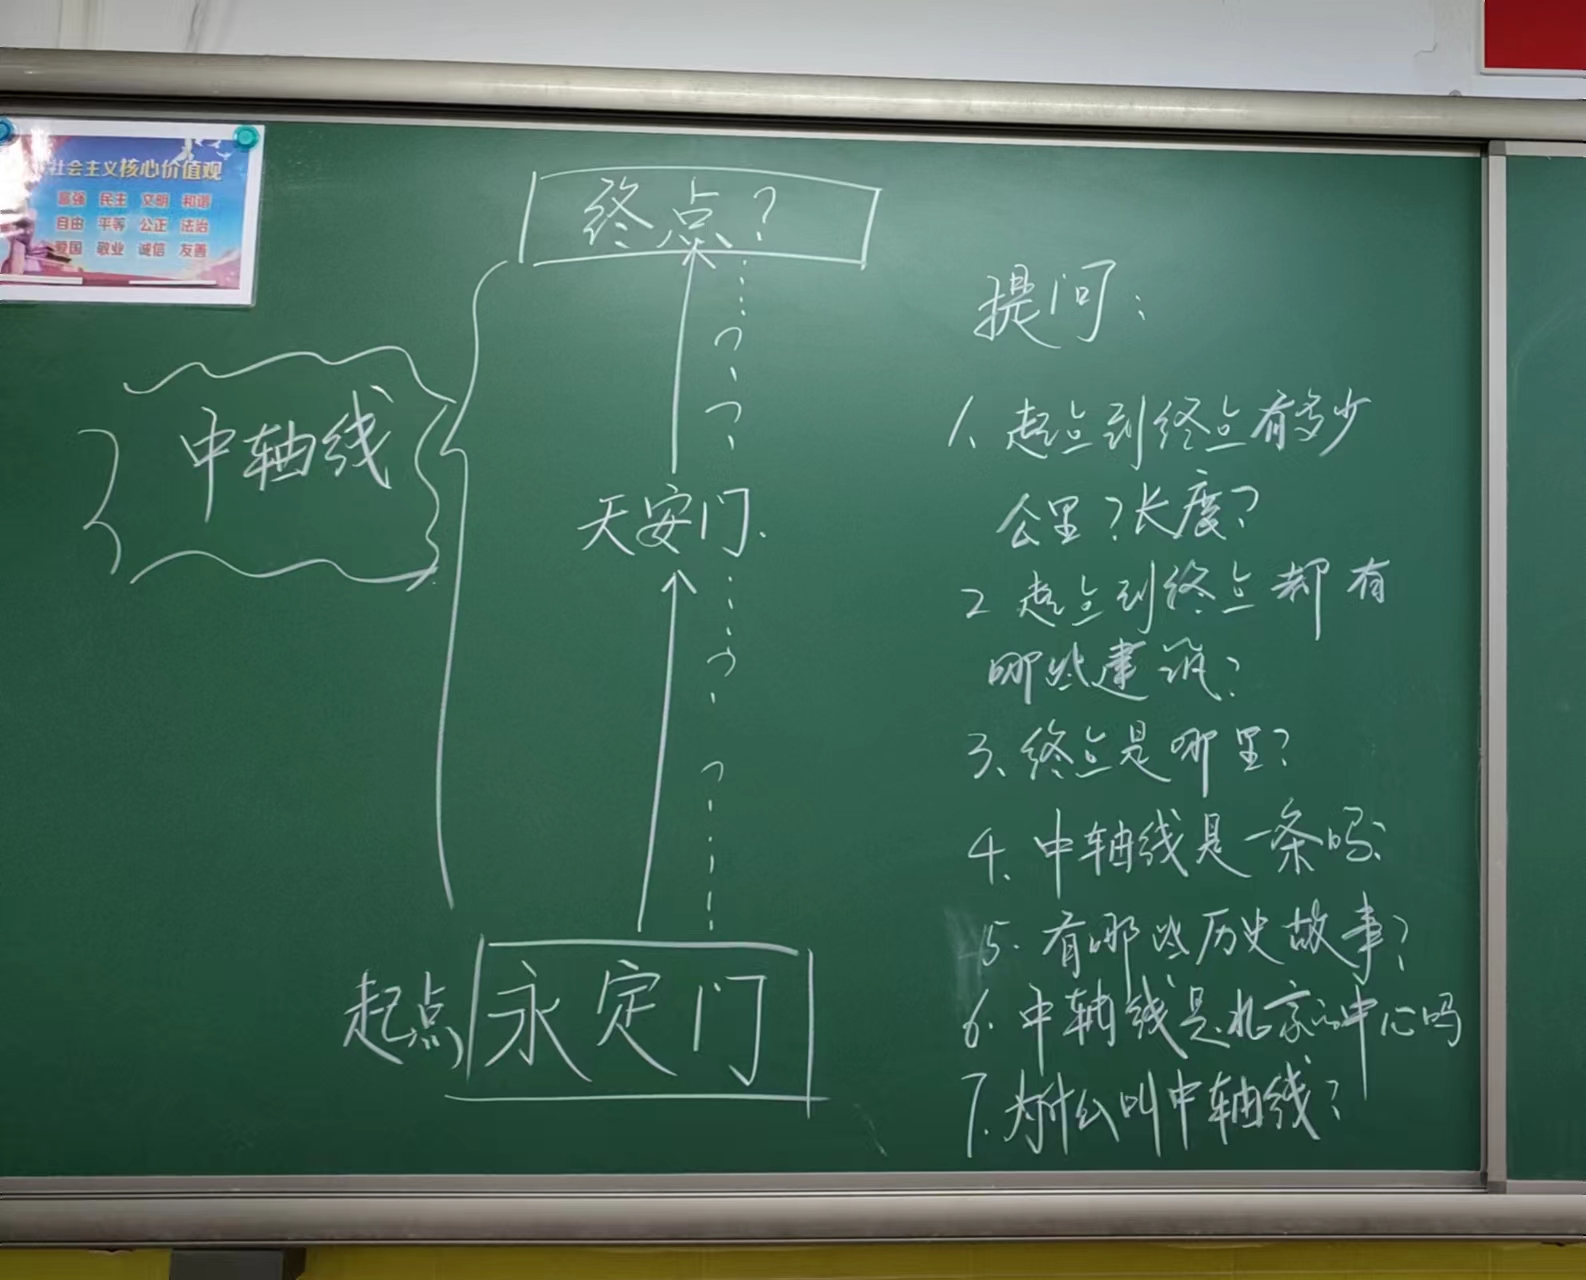 社会主义核心价值观
富强 民主 文明 和谐
自由 平等 公正 法治
爱国 敬业 诚信 友善
终点?
中轴线
天安门.
起点 永定门
提问:
1、起点到终点有多少
公里?长度?
2 起点到终点都有
哪些建筑?
3、终点是哪里?
4、中轴线是一条吗?
5.有哪些历史故事?
6.中轴线是北京的中心吗
7.为什么叫中轴线?